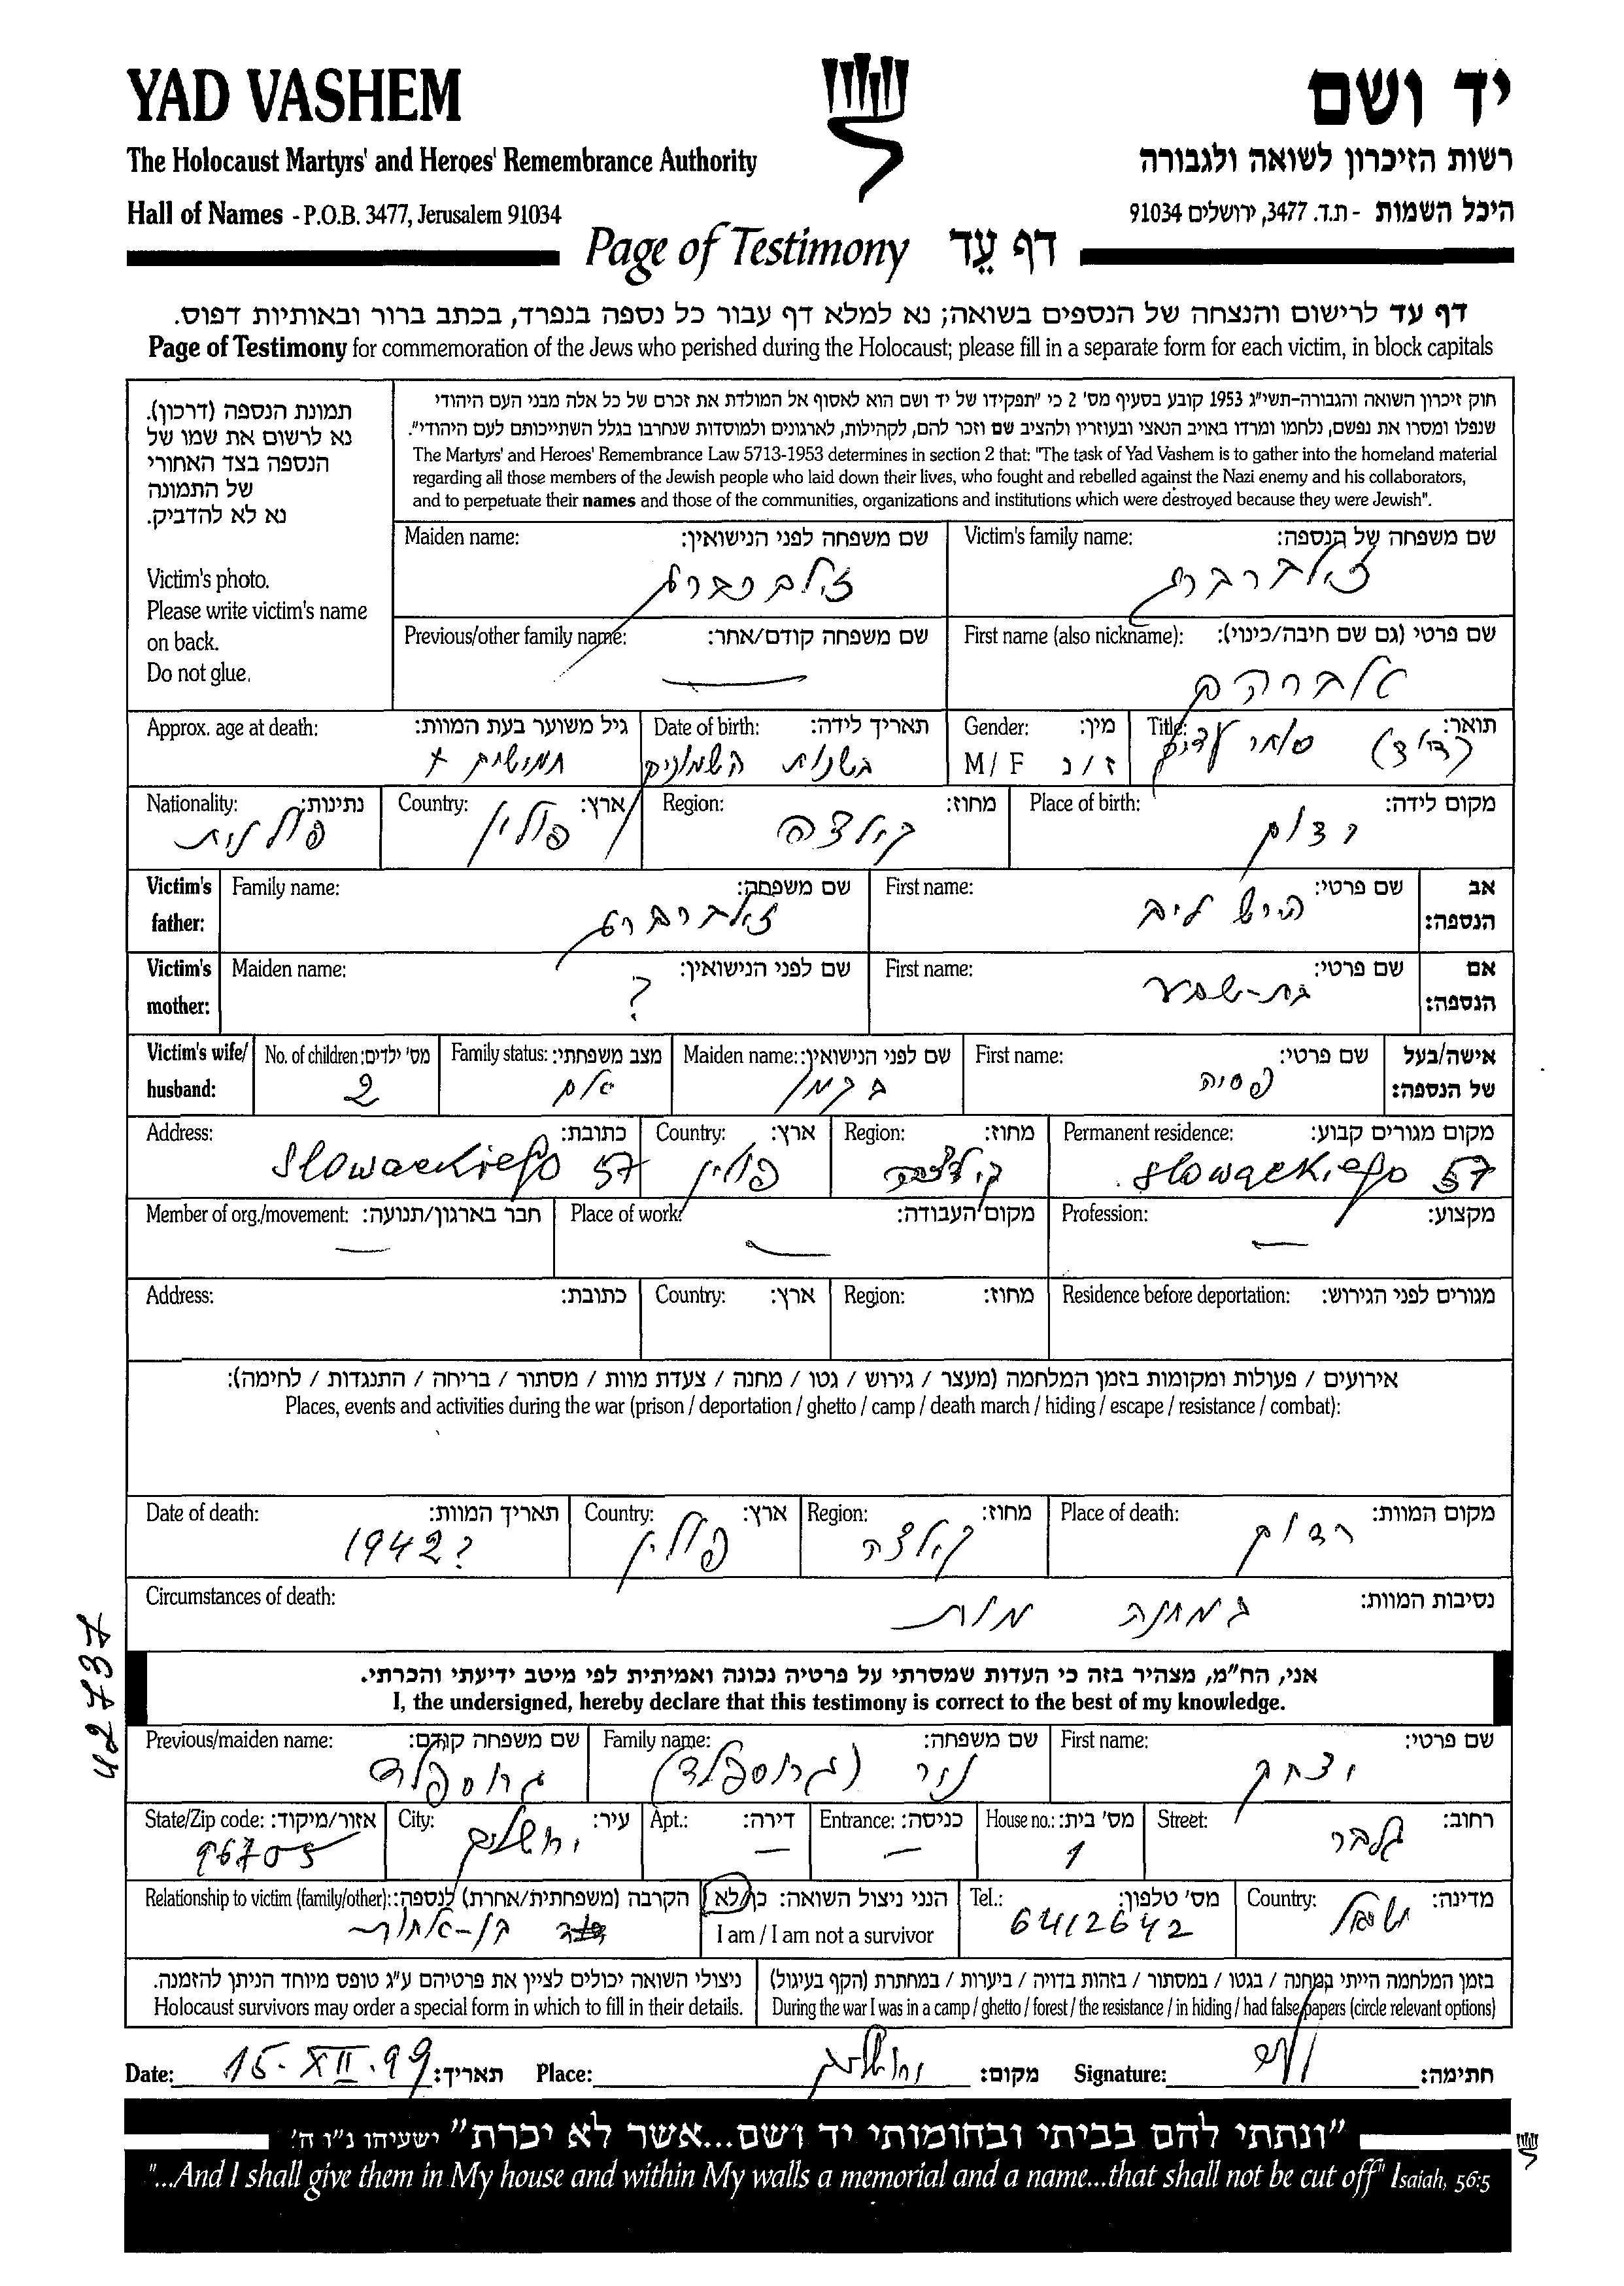 YAD VASHEM
יד ושם
The Holocaust Martyrs' and Heroes' Remembrance Authority
רשות הזיכרון לשואה ולגבורה
Hall of Names - P.O.B. 3477, Jerusalem 91034
היכל השמות - ת.ד. 3477, ירושלים 91034
Page of Testimony דף עֵד
דף עד לרישום והנצחה של הנספים בשואה; נא למלא דף עבור כל נספה בנפרד, בכתב ברור ובאותיות דפוס.
Page of Testimony for commemoration of the Jews who perished during the Holocaust; please fill in a separate form for each victim, in block capitals
תמונת הנספה (דרכון).
נא לרשום את שמו של
הנספה בצד האחורי
של התמונה
נא לא להדביק.
Victim's photo.
Please write victim's name
on back.
Do not glue.
חוק זיכרון השואה והגבורה-תשי"ג 1953 קובע בסעיף מס' 2 כי "תפקידו של יד ושם הוא לאסוף אל המולדת את זכרם של כל אלה מבני העם היהודי
שנפלו ומסרו את נפשם, נלחמו ומרדו באויב הנאצי ובעוזריו ולהציב שם וזכר להם, לקהילות, לארגונים ולמוסדות שנחרבו בגלל השתייכותם לעם היהודי".
The Martyrs' and Heroes' Remembrance Law 5713-1953 determines in section 2 that: "The task of Yad Vashem is to gather into the homeland material
regarding all those members of the Jewish people who laid down their lives, who fought and rebelled against the Nazi enemy and his collaborators,
and to perpetuate their names and those of the communities, organizations and institutions which were destroyed because they were Jewish".
Victim's family name: שם משפחה של הנספה:
זילברברג
Maiden name: שם משפחה לפני הנישואין:
זילברברג
First name (also nickname): שם פרטי (גם שם חיבה/כינוי):
אברהם
Previous/other family name: שם משפחה קודם/אחר:
Title: תואר:
(ד"צ)
Gender: מין:
M / F ז / נ
Date of birth: תאריך לידה:
בשנות השמונים
Approx. age at death: גיל משוער בעת המוות:
חמישים +
Place of birth: מקום לידה:
רדום
Region: מחוז:
קילצה
Country: ארץ:
פולין
Nationality: נתינות:
פולנית
Victim's father: אב הנספה:
First name: שם פרטי:
הירש לייב
Family name: שם משפחה:
זילברברג
Victim's mother: אם הנספה:
First name: שם פרטי:
בת-שבע
Maiden name: שם לפני הנישואין:
?
Victim's wife/ husband: אישה/בעל של הנספה:
First name: שם פרטי:
פסיה
Maiden name: שם לפני הנישואין:
בקמן
Family status: מצב משפחתי:
No. of children: מס' ילדים:
2
Permanent residence: מקום מגורים קבוע:
Slowackiego 57
Region: מחוז:
קילצה
Country: ארץ:
פולין
Address: כתובת:
Slowackiego 57
Profession: מקצוע:
—
Place of work: מקום העבודה:
—
Member of org./movement: חבר בארגון/תנועה:
—
Residence before deportation: מגורים לפני הגירוש:
Region: מחוז:
Country: ארץ:
Address: כתובת:
אירועים / פעולות ומקומות בזמן המלחמה (מעצר / גירוש / גטו / מחנה / צעדת מוות / מסתור / בריחה / התנגדות / לחימה):
Places, events and activities during the war (prison / deportation / ghetto / camp / death march / hiding / escape / resistance / combat):
Place of death: מקום המוות:
רדום
Region: מחוז:
קילצה
Country: ארץ:
פולין
Date of death: תאריך המוות:
1942?
Circumstances of death: נסיבות המוות:
במחנה מוות
42737
אני, הח"מ, מצהיר בזה כי העדות שמסרתי על פרטיה נכונה ואמיתית לפי מיטב ידיעתי והכרתי.
I, the undersigned, hereby declare that this testimony is correct to the best of my knowledge.
First name: שם פרטי:
יצחק
Family name: שם משפחה:
ניר (גרוספלד)
Previous/maiden name: שם משפחה קודם:
גרוספלד
Street: רחוב:
גלבר
House no.: מס' בית:
1
Entrance: כניסה:
—
Apt.: דירה:
—
City: עיר:
ירושלים
State/Zip code: אזור/מיקוד:
96705
Country: מדינה:
ישראל
Tel.: מס' טלפון:
6412642
הנני ניצול השואה: כן/לא
I am / I am not a survivor
Relationship to victim (family/other): הקרבה (משפחתית/אחרת) לנספה:
בן-אחות
בזמן המלחמה הייתי במחנה / בגטו / במסתור / בזהות בדויה / ביערות / במחתרת (הקף בעיגול)
During the war I was in a camp / ghetto / forest / the resistance / in hiding / had false papers (circle relevant options)
ניצולי השואה יכולים לציין את פרטיהם ע"ג טופס מיוחד הניתן להזמנה.
Holocaust survivors may order a special form in which to fill in their details.
Date: 15.XII.99 תאריך:
Place: ירושלים מקום:
Signature: חתימה:
"ונתתי להם בביתי ובחומותי יד ושם...אשר לא יכרת" ישעיהו נ"ו ה'
"...And I shall give them in My house and within My walls a memorial and a name...that shall not be cut off" Isaiah, 56:5